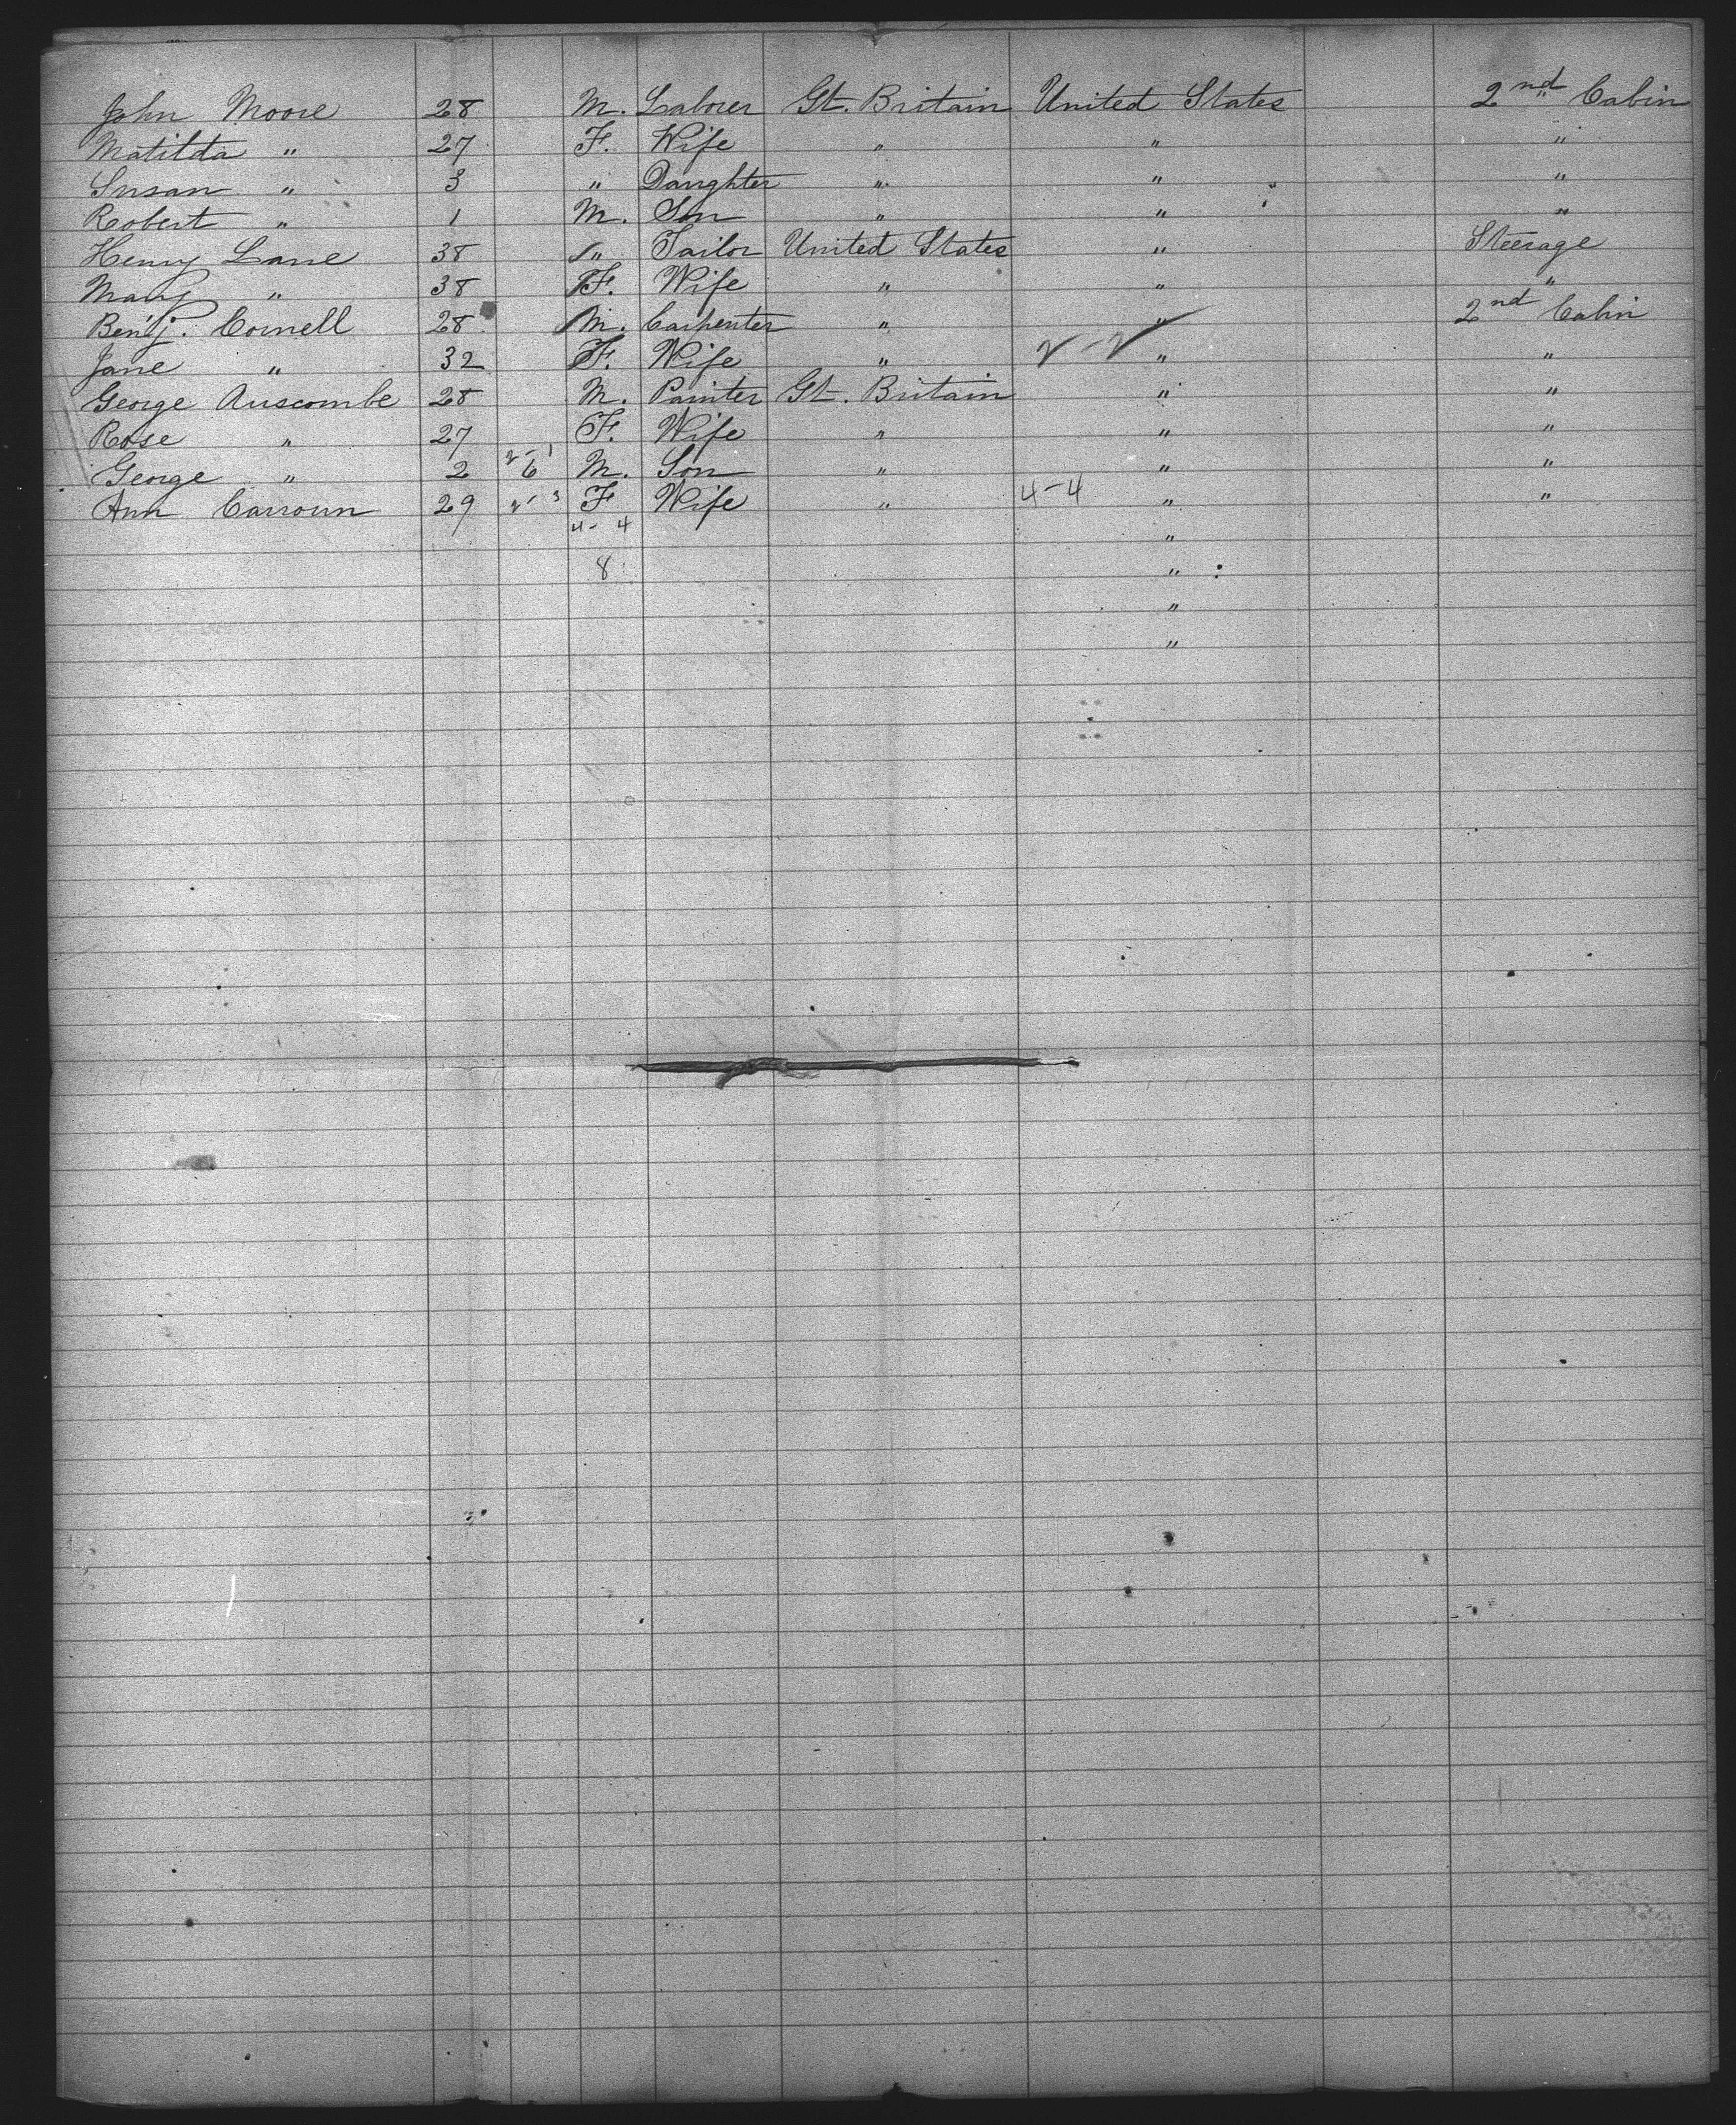 John Moore 28 M. Laborer Gt. Britain United States 2nd Cabin
Matilda " 27 F. Wife " " "
Susan " 3 " Daughter " " "
Robert " 1 M. Son " " "
Henry Lane 38 " Tailor United States " Steerage
Mary " 38 F. Wife " " "
Benj. Cornell 28 M. Carpenter " " 2nd Cabin
Jane " 32 F. Wife " 2-2 " "
George Auscombe 28 M. Painter Gt. Britain " "
Rose " 27 F. Wife " " "
George " 2 2-1 6 M. Son " " "
Ann 29 2-3 F Wife " 4-4 " "
4-4 "
8 "
"
"